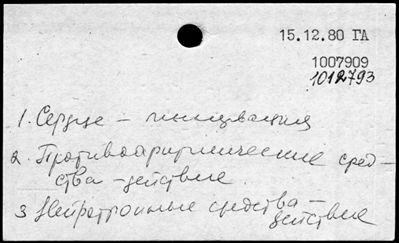 15.12.80 ГА
1007909
1012793
1. Сердце – иннервация
2. Противоаритмические сред-
ства – действие
3 Нейротропные средства –
действие